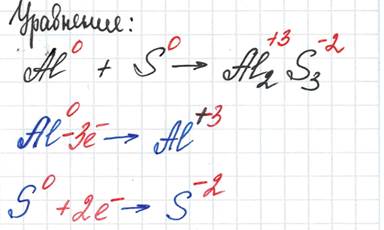 Уравнение:
Al⁰ + S⁰ → Al₂⁺³ S₃⁻²
Al⁰ -3e⁻ → Al⁺³
S⁰ +2e⁻ → S⁻²